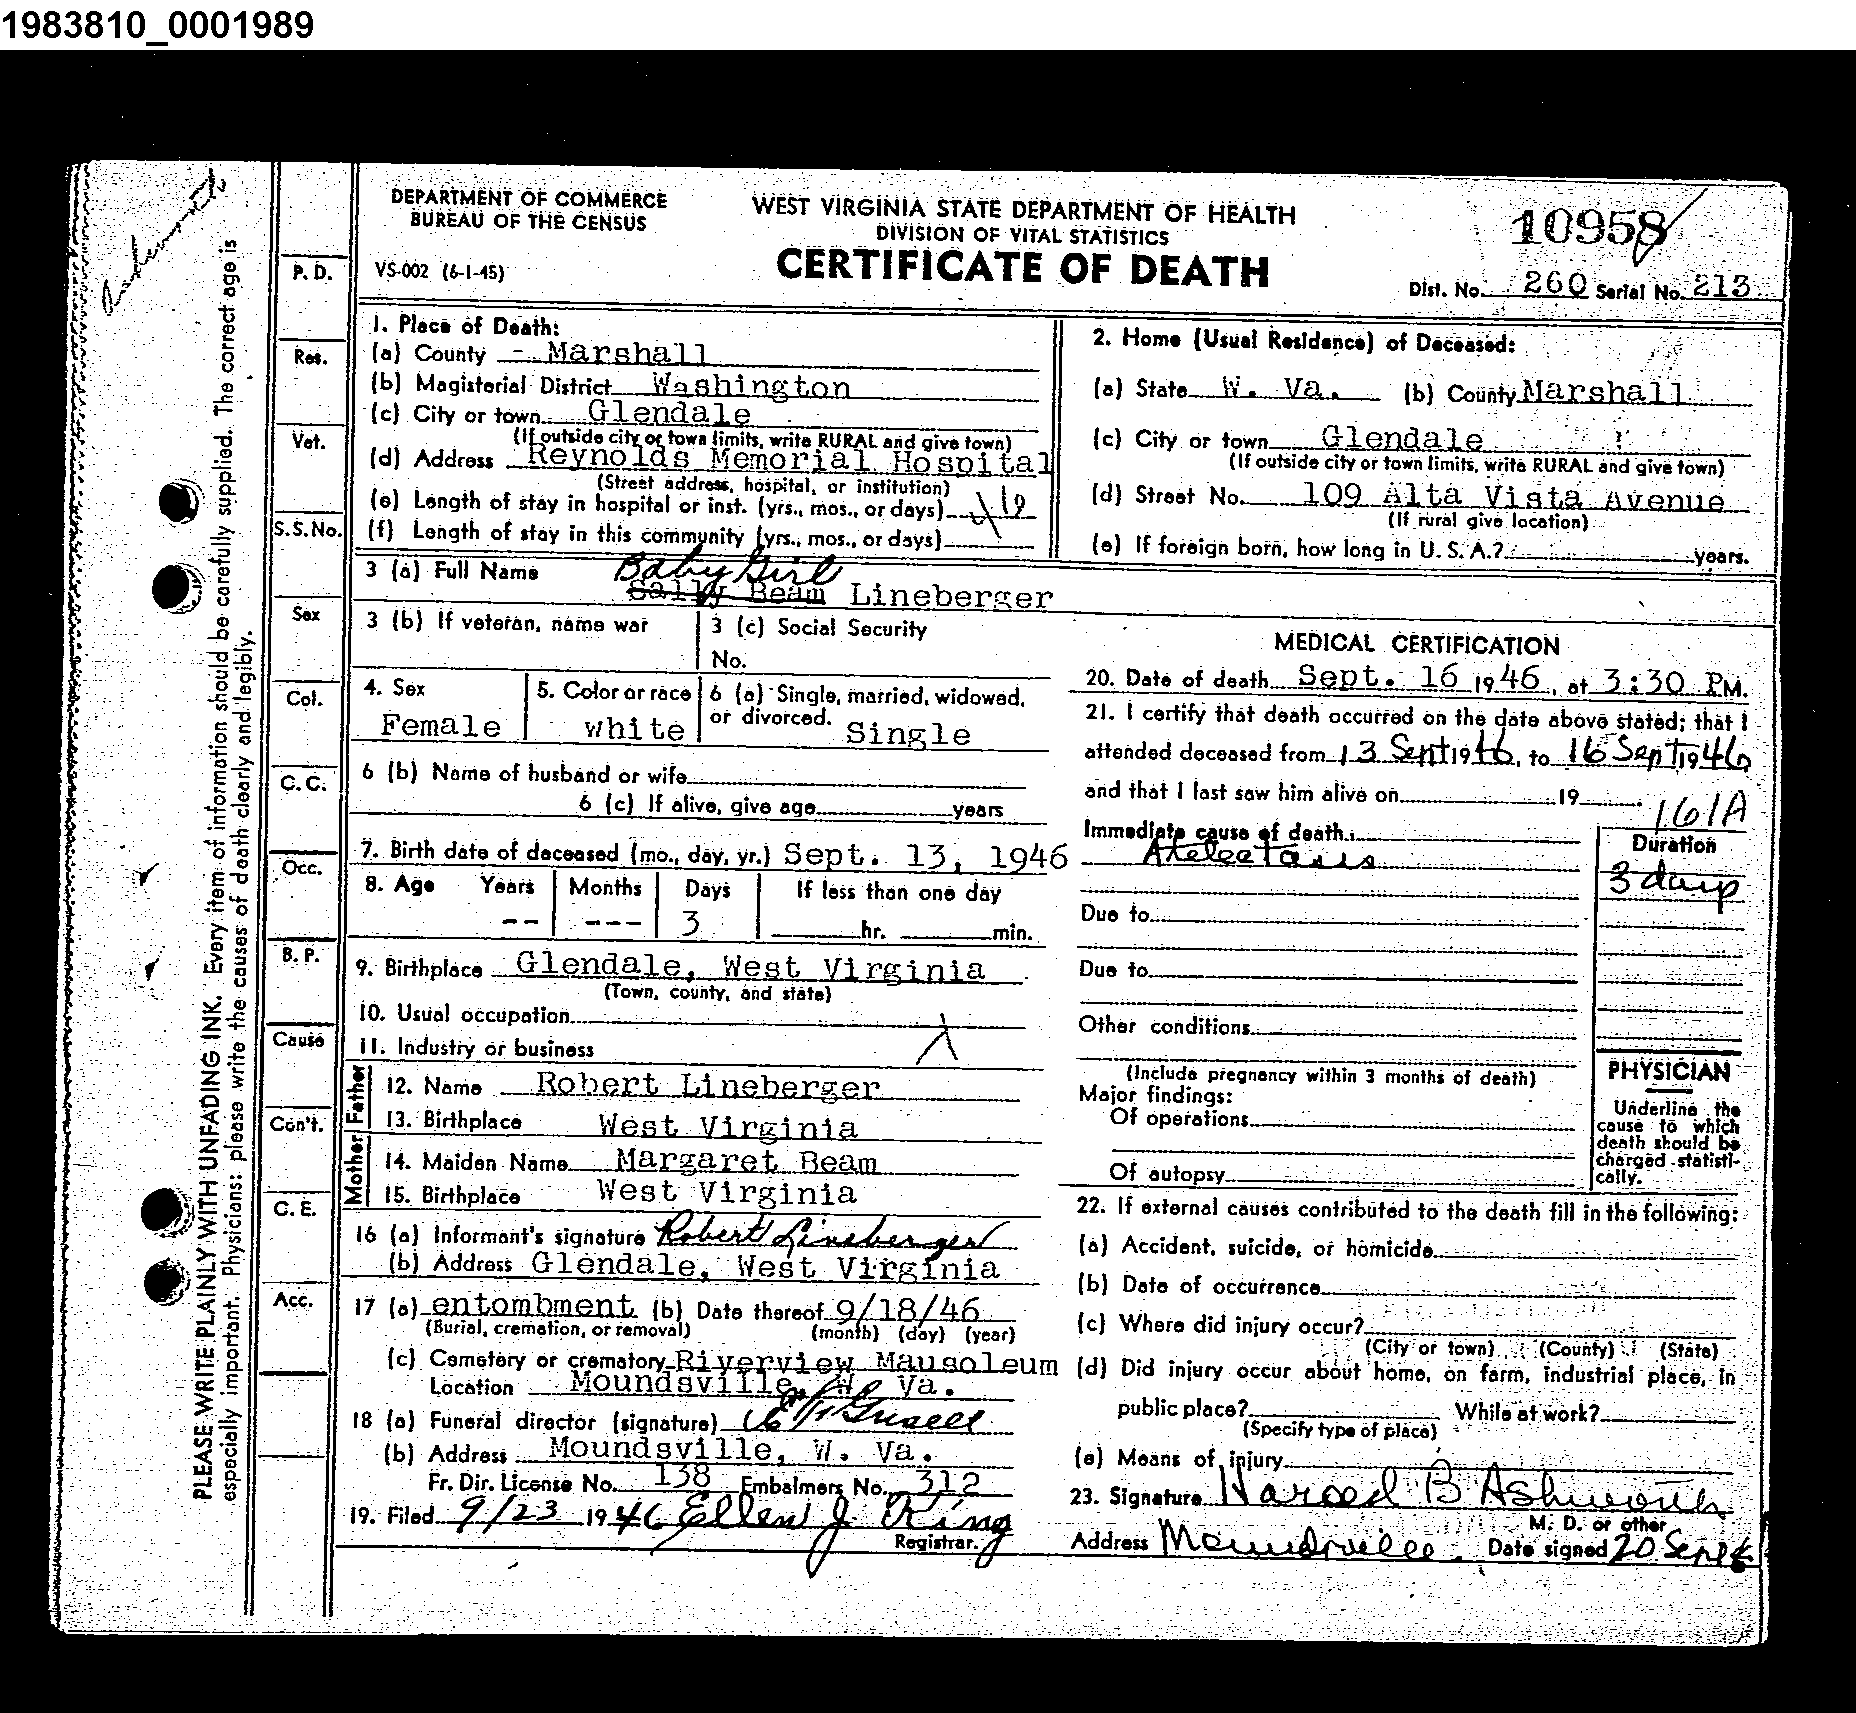 1983810_0001989
DEPARTMENT OF COMMERCE
BUREAU OF THE CENSUS
WEST VIRGINIA STATE DEPARTMENT OF HEALTH
DIVISION OF VITAL STATISTICS
CERTIFICATE OF DEATH
10958
VS-002 (6-1-45)
Dist. No. 260 Serial No. 213
PLEASE WRITE PLAINLY WITH UNFADING INK. Every item of information should be carefully supplied. The correct age is
especially important. Physicians: please write the causes of death clearly and legibly.
P. D.
Res.
Vet.
S.S.No.
Sex
Col.
C. C.
Occ.
B. P.
Cause
Con't.
C. E.
Acc.
1. Place of Death:
(a) County - Marshall
(b) Magisterial District Washington
(c) City or town Glendale
(If outside city or town limits, write RURAL and give town)
(d) Address Reynolds Memorial Hospital
(Street address, hospital, or institution)
(e) Length of stay in hospital or inst. (yrs., mos., or days)
(f) Length of stay in this community (yrs., mos., or days)
2. Home (Usual Residence) of Deceased:
(a) State W. Va. (b) County Marshall
(c) City or town Glendale
(If outside city or town limits, write RURAL and give town)
(d) Street No. 109 Alta Vista Avenue
(If rural give location)
(e) If foreign born, how long in U. S. A.? years.
3 (a) Full Name Baby Girl
Sally Beam Lineberger
3 (b) If veteran, name war
3 (c) Social Security
No.
4. Sex
Female
5. Color or race
white
6 (a) Single, married, widowed,
or divorced. Single
6 (b) Name of husband or wife
6 (c) If alive, give age years
7. Birth date of deceased (mo., day, yr.) Sept. 13, 1946
8. Age Years Months Days If less than one day
-- --- 3 hr. min.
9. Birthplace Glendale, West Virginia
(Town, county, and state)
10. Usual occupation
11. Industry or business
Father
12. Name Robert Lineberger
13. Birthplace West Virginia
Mother
14. Maiden Name Margaret Beam
15. Birthplace West Virginia
16 (a) Informant's signature Robert Lineberger
(b) Address Glendale, West Virginia
17 (a) entombment (b) Date thereof 9/18/46
(Burial, cremation, or removal) (month) (day) (year)
(c) Cemetery or crematory Riverview Mausoleum
Location Moundsville, W. Va.
18 (a) Funeral director (signature)
(b) Address Moundsville, W. Va.
Fr. Dir. License No. 138 Embalmers No. 312
19. Filed 9/23 1946 Ellen J King
Registrar.
MEDICAL CERTIFICATION
20. Date of death Sept. 16 1946, at 3:30 PM.
21. I certify that death occurred on the date above stated; that I
attended deceased from 13 Sept 1946, to 16 Sept 1946
and that I last saw him alive on 19
161A
Immediate cause of death
Atelectasis
Duration
3 days
Due to
Due to
Other conditions
(Include pregnancy within 3 months of death)
Major findings:
Of operations
Of autopsy
PHYSICIAN
Underline the
cause to which
death should be
charged statisti-
cally.
22. If external causes contributed to the death fill in the following:
(a) Accident, suicide, or homicide
(b) Date of occurrence
(c) Where did injury occur?
(City or town) (County) (State)
(d) Did injury occur about home, on farm, industrial place, in
public place? While at work?
(Specify type of place)
(e) Means of injury
23. Signature Harold B Ashworth
M. D. or other
Address Moundsville. Date signed 20 Sept